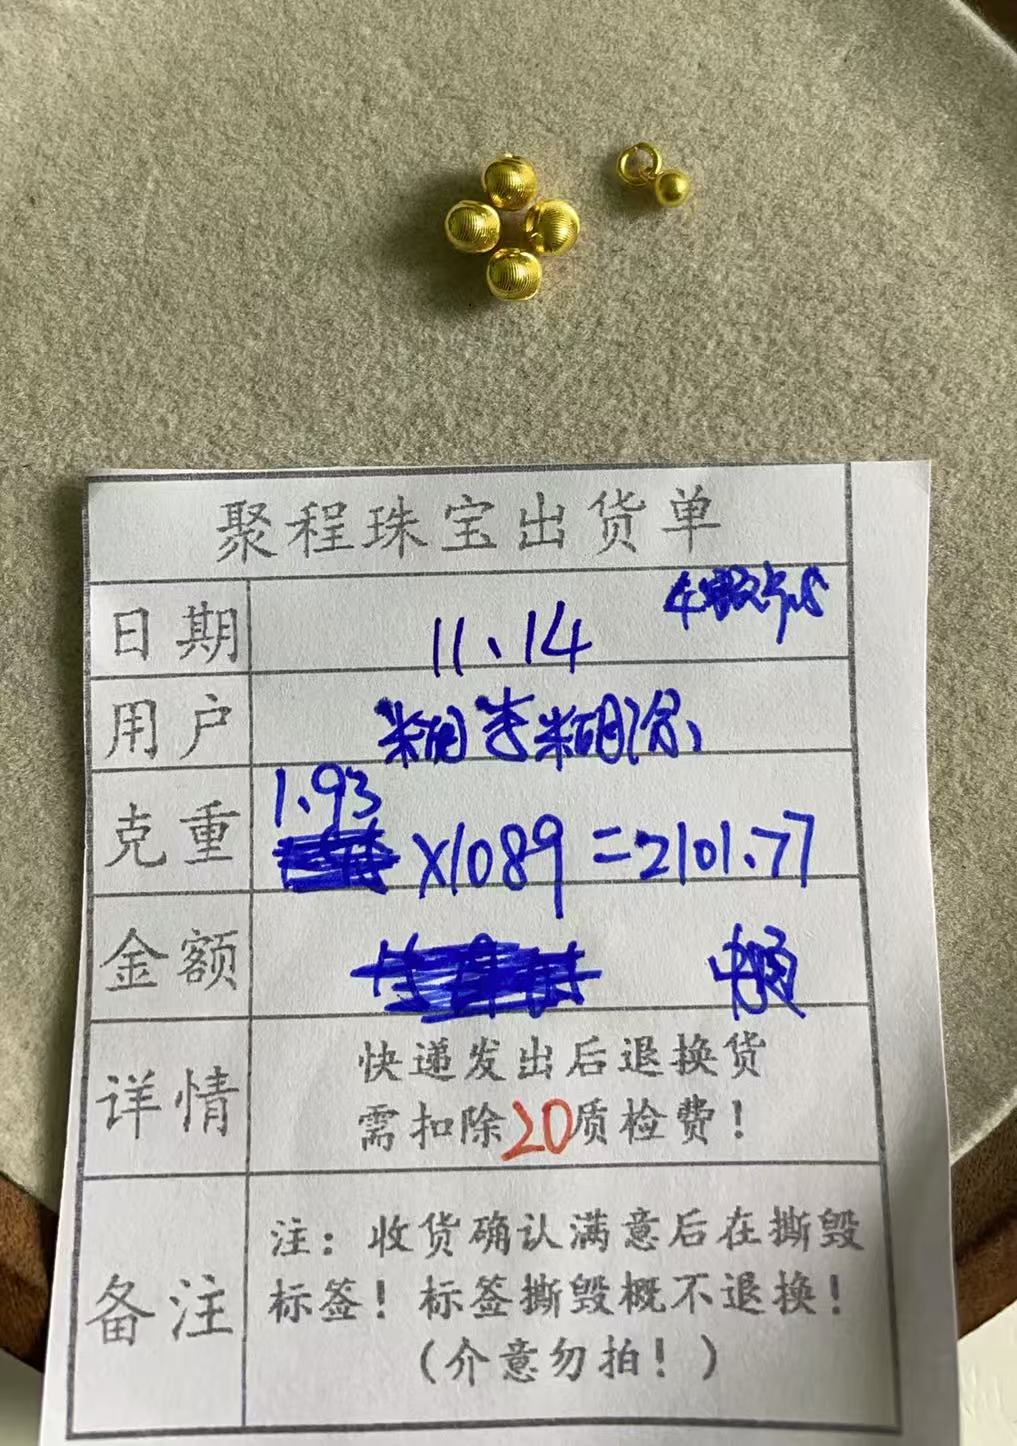 聚程珠宝出货单
日期 11.14
用户
克重 1.93 X1089=2101.77
金额
详情 快递发出后退换货
需扣除20质检费！
备注 注：收货确认满意后在撕毁
标签！标签撕毁概不退换！
（介意勿拍！）